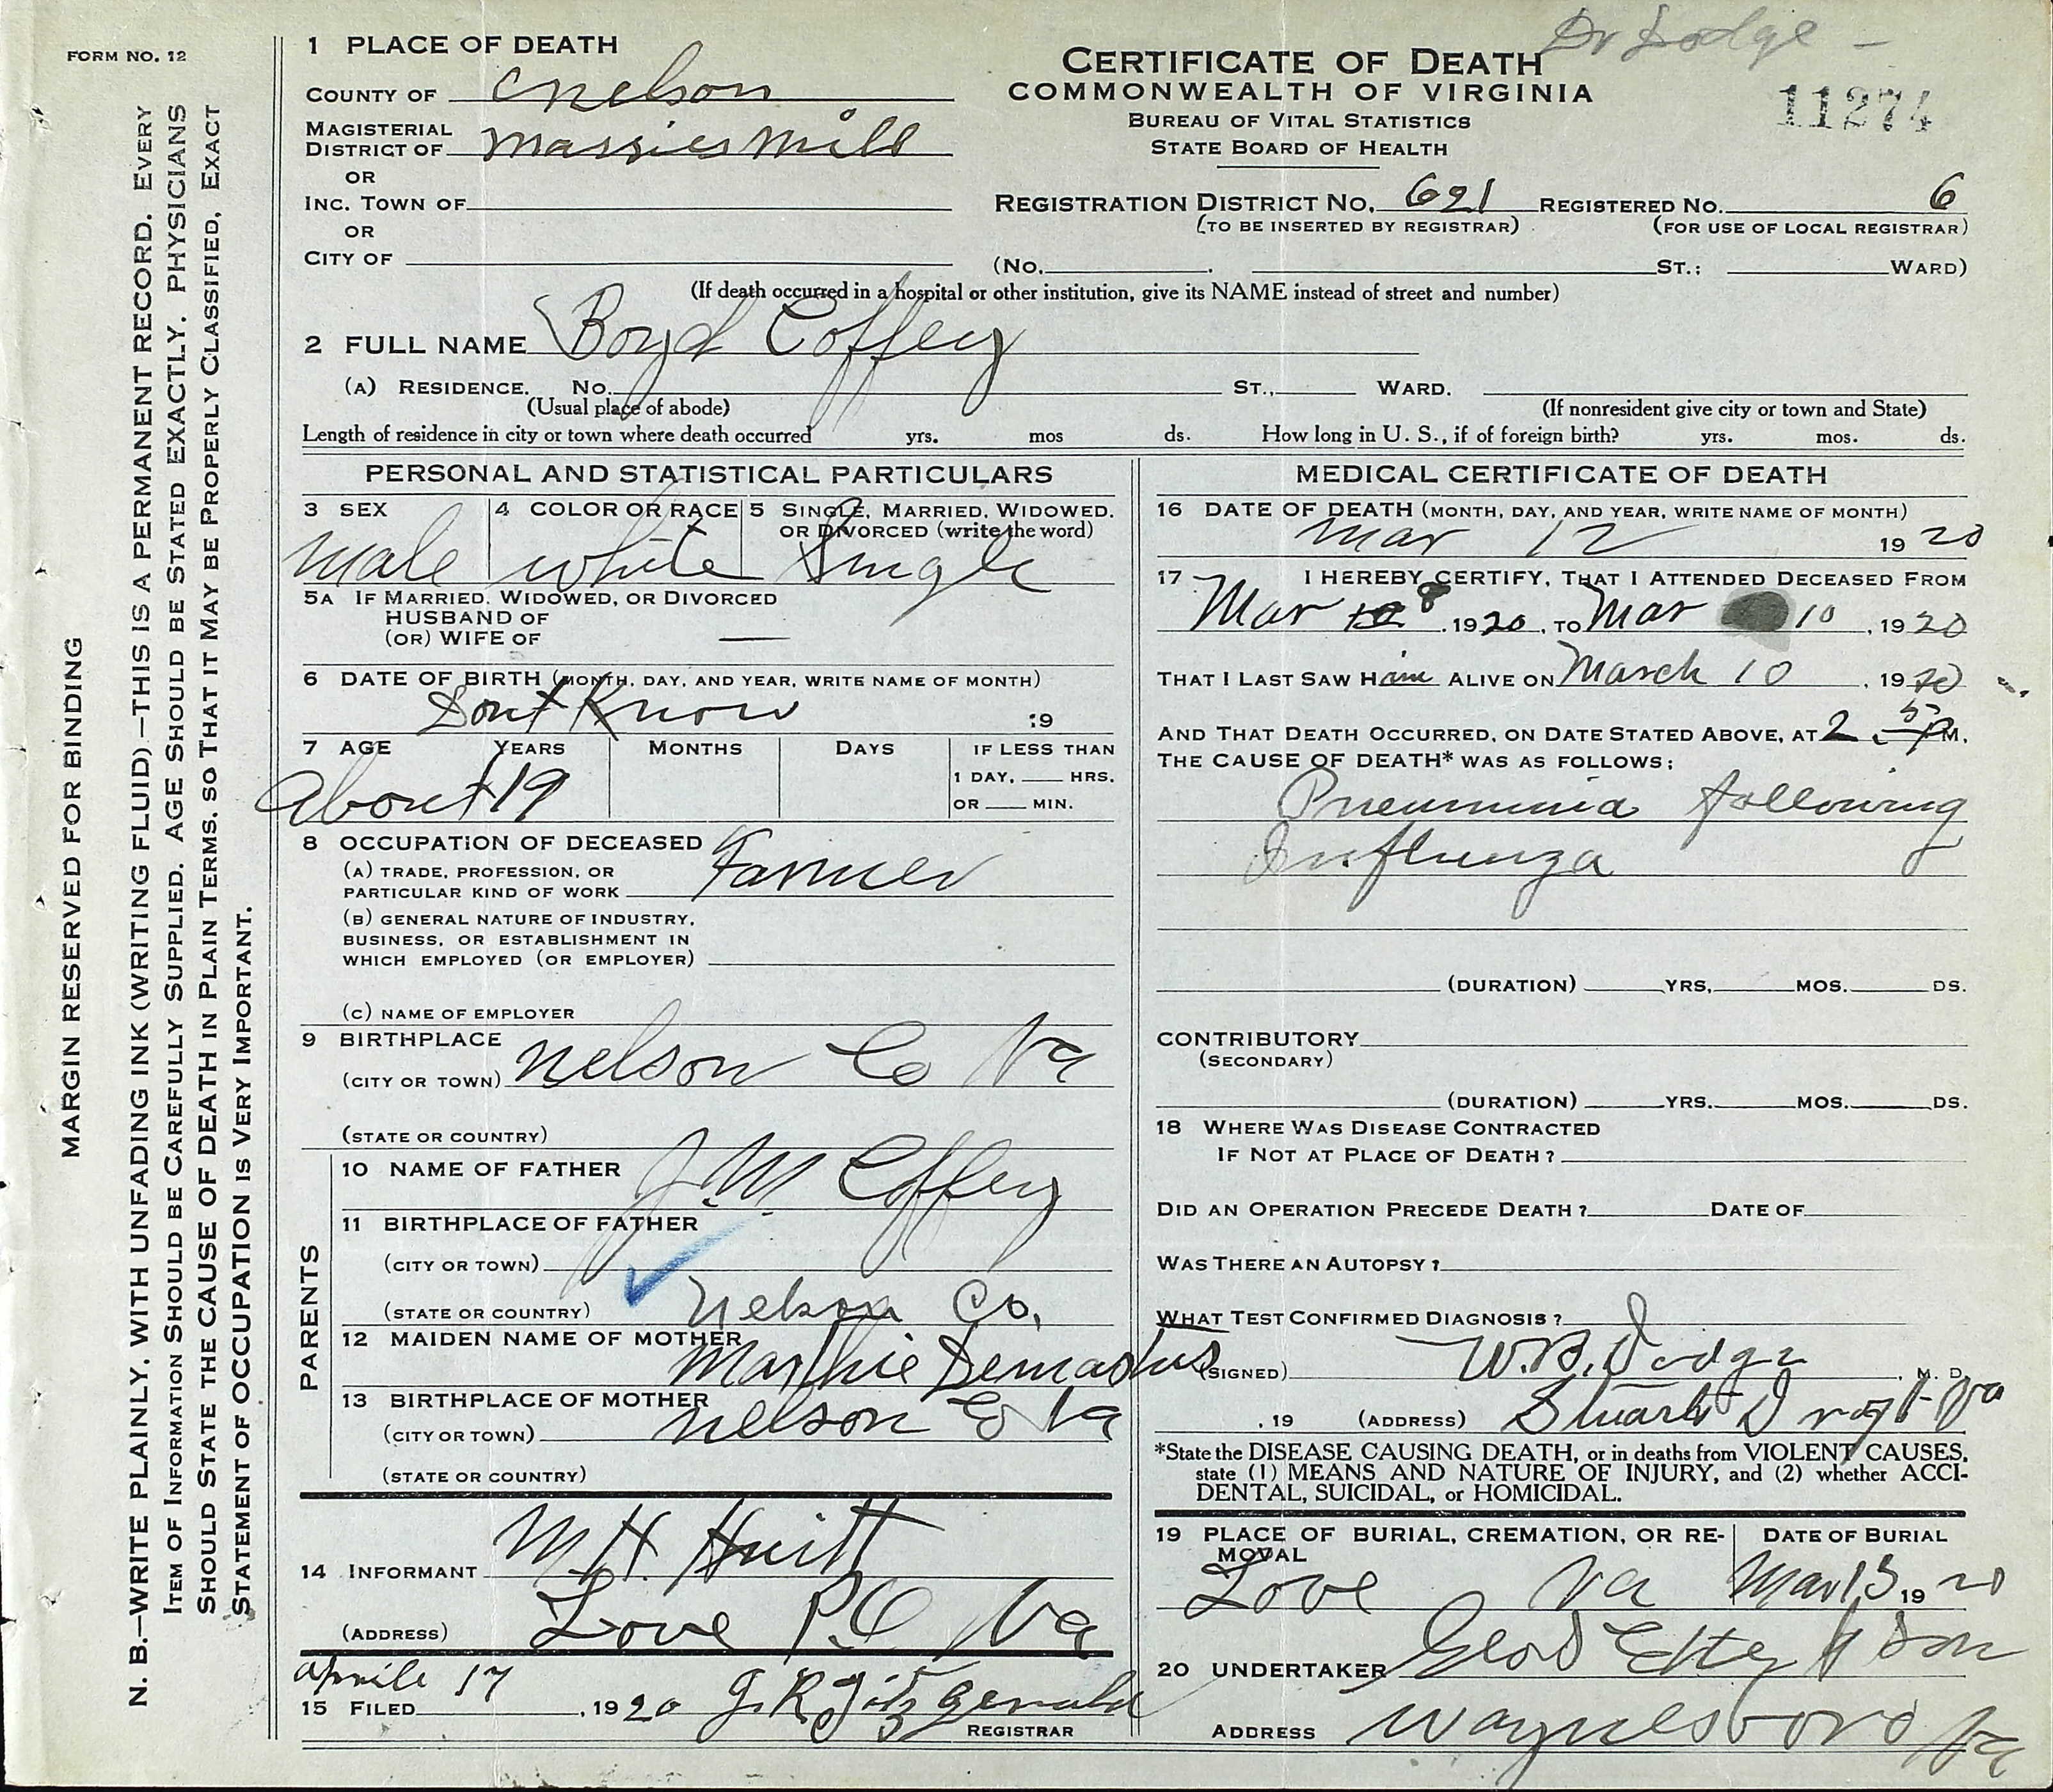 FORM NO. 12
MARGIN RESERVED FOR BINDING
N. B.—WRITE PLAINLY, WITH UNFADING INK (WRITING FLUID)—THIS IS A PERMANENT RECORD. EVERY
ITEM OF INFORMATION SHOULD BE CAREFULLY SUPPLIED. AGE SHOULD BE STATED EXACTLY. PHYSICIANS
SHOULD STATE THE CAUSE OF DEATH IN PLAIN TERMS, SO THAT IT MAY BE PROPERLY CLASSIFIED, EXACT
STATEMENT OF OCCUPATION IS VERY IMPORTANT.
1 PLACE OF DEATH
COUNTY OF Nelson
MAGISTERIAL
DISTRICT OF Massies Mill
OR
INC. TOWN OF
OR
CITY OF
Dr Dodge –
CERTIFICATE OF DEATH
COMMONWEALTH OF VIRGINIA
BUREAU OF VITAL STATISTICS
STATE BOARD OF HEALTH
11274
REGISTRATION DISTRICT NO. 621 REGISTERED NO. 6
(TO BE INSERTED BY REGISTRAR) (FOR USE OF LOCAL REGISTRAR)
(NO. ST.; WARD)
(If death occurred in a hospital or other institution, give its NAME instead of street and number)
2 FULL NAME Boyd Coffey
(A) RESIDENCE. NO. ST., WARD.
(Usual place of abode) (If nonresident give city or town and State)
Length of residence in city or town where death occurred yrs. mos ds. How long in U. S., if of foreign birth? yrs. mos. ds.
PERSONAL AND STATISTICAL PARTICULARS
3 SEX 4 COLOR OR RACE 5 SINGLE, MARRIED, WIDOWED,
OR DIVORCED (write the word)
male white Single
5A IF MARRIED, WIDOWED, OR DIVORCED
HUSBAND OF
(OR) WIFE OF —
6 DATE OF BIRTH (MONTH, DAY, AND YEAR, WRITE NAME OF MONTH)
Dont Know 19
7 AGE YEARS MONTHS DAYS IF LESS THAN
1 DAY, HRS.
OR MIN.
About 19
8 OCCUPATION OF DECEASED
(A) TRADE, PROFESSION, OR
PARTICULAR KIND OF WORK Farmer
(B) GENERAL NATURE OF INDUSTRY,
BUSINESS, OR ESTABLISHMENT IN
WHICH EMPLOYED (OR EMPLOYER)
(C) NAME OF EMPLOYER
9 BIRTHPLACE
(CITY OR TOWN) Nelson Co Va
(STATE OR COUNTRY)
PARENTS
10 NAME OF FATHER J. M. Coffey
11 BIRTHPLACE OF FATHER
(CITY OR TOWN)
(STATE OR COUNTRY) Nelson Co.
12 MAIDEN NAME OF MOTHER Marthie Demastus
13 BIRTHPLACE OF MOTHER
(CITY OR TOWN) Nelson Co Va
(STATE OR COUNTRY)
14 INFORMANT M. H. Huitt
(ADDRESS) Love P.O Va
15 FILED aprile 17, 1920 J. R. Fitzgerald
REGISTRAR
MEDICAL CERTIFICATE OF DEATH
16 DATE OF DEATH (MONTH, DAY, AND YEAR, WRITE NAME OF MONTH)
Mar 12 1920
17 I HEREBY CERTIFY, THAT I ATTENDED DECEASED FROM
Mar 8, 1920, TO Mar 10, 1920
THAT I LAST SAW Him ALIVE ON March 10, 1920
AND THAT DEATH OCCURRED, ON DATE STATED ABOVE, AT 2 M.
THE CAUSE OF DEATH* WAS AS FOLLOWS:
Pneumonia following
Influenza
(DURATION) YRS. MOS. DS.
CONTRIBUTORY
(SECONDARY)
(DURATION) YRS. MOS. DS.
18 WHERE WAS DISEASE CONTRACTED
IF NOT AT PLACE OF DEATH?
DID AN OPERATION PRECEDE DEATH? DATE OF
WAS THERE AN AUTOPSY?
WHAT TEST CONFIRMED DIAGNOSIS?
(SIGNED) W. B. Dodge, M. D
, 19 (ADDRESS) Stuarts Draft Va
*State the DISEASE CAUSING DEATH, or in deaths from VIOLENT CAUSES,
state (1) MEANS AND NATURE OF INJURY, and (2) whether ACCI-
DENTAL, SUICIDAL, or HOMICIDAL.
19 PLACE OF BURIAL, CREMATION, OR RE-
MOVAL DATE OF BURIAL
Love Va Mar 13, 1920
20 UNDERTAKER Etter & Son
ADDRESS Waynesboro Va